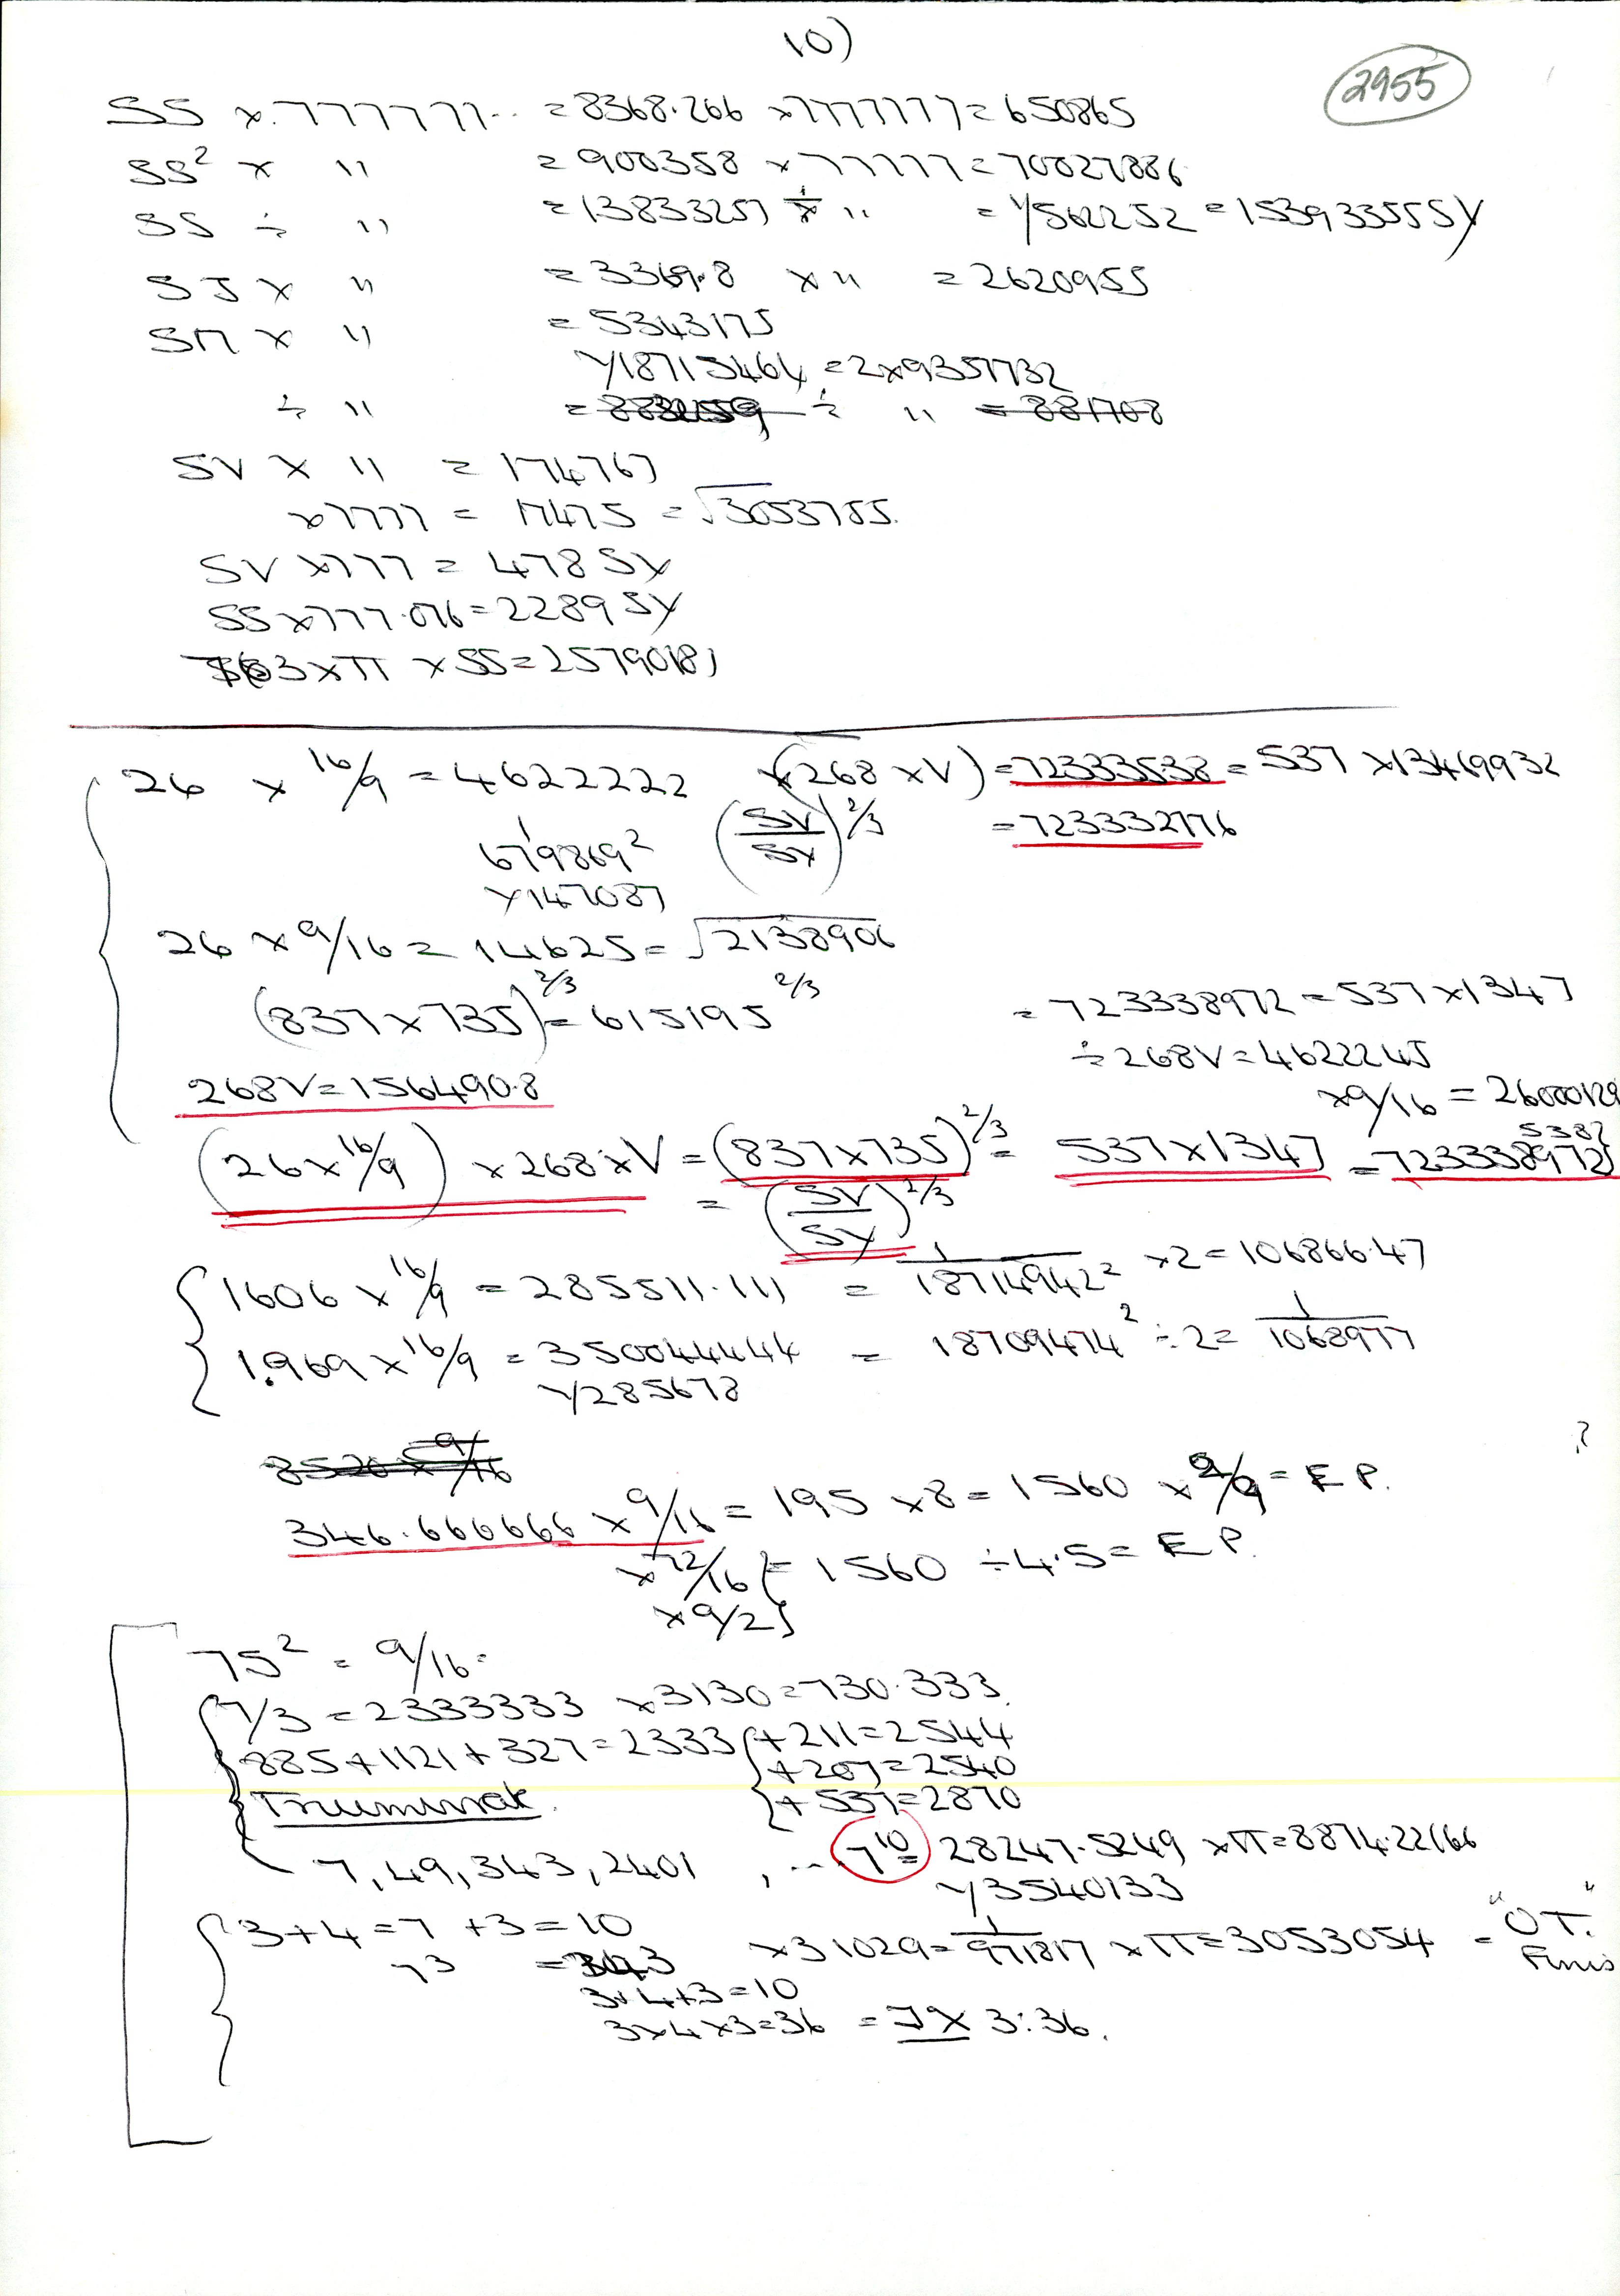 10)
2955
SS x .777777.. = 8368.266 x 777777 = 650865
SS² x " = 900358 x 77777 = 70027886
SS ÷ " = 13833257 ÷ " = Y562252 = 153933555Y
SJ x " = 3369.8 x " = 2620955
SM x " = 5343175
Y18715464 = 2x9357732
÷ " = ÷ " = 881708
SV x " = 174767
x7777 = 17475 = √3053755.
SV x777 = 478 SY
SS x777.076 = 2289 SY
3 x π x SS = 2579018
26 x 16/9 = 4622222 x(268 x V) = 72333538 = 537 x 13469932
1 (SV/SY)^2/3 = 723332776
679869²
Y147087
26 x 9/16 = 14625 = √2138906
(837 x 735)^2/3 = 615195^2/3 = 723338972 = 537 x 1347
÷ 268V = 4622245
268V = 156490.8 x9/16 = 26000129
(26 x 16/9) x 268 x V = (837 x 735)^2/3 = 537 x 1347 = 723338972}
5387
= (SV/SY)^2/3
{1606 x 16/9 = 285511.111 = 1/18714942² x2 = 106866.47
1.969 x 16/9 = 350044444 = 18709474² ÷ 2 = 1/1068977
Y285678
8520 x 9/16
?
346.666666 x 9/16 = 195 x 8 = 1560 x 2/9 = E P.
x 72/16 }= 1560 ÷ 4.5 = E P.
x 9/2 }
75² = 9/16.
{7/3 = 2333333 x3130 = 730.333.
885 + 1121 + 327 = 2333 {+ 211 = 2544
+ 207 = 2540
+ 537 = 2870
7, 49, 343, 2401 , ... 7¹⁰ = 28247.5249 x π = 8874.22166
Y3540133
{3 + 4 = 7 + 3 = 10
7³ = 343 x 31029 = 1/971817 x π = 3053054 = "O T."
Finis
3+4+3 = 10
3x4x3 = 36 = JX 3:36.